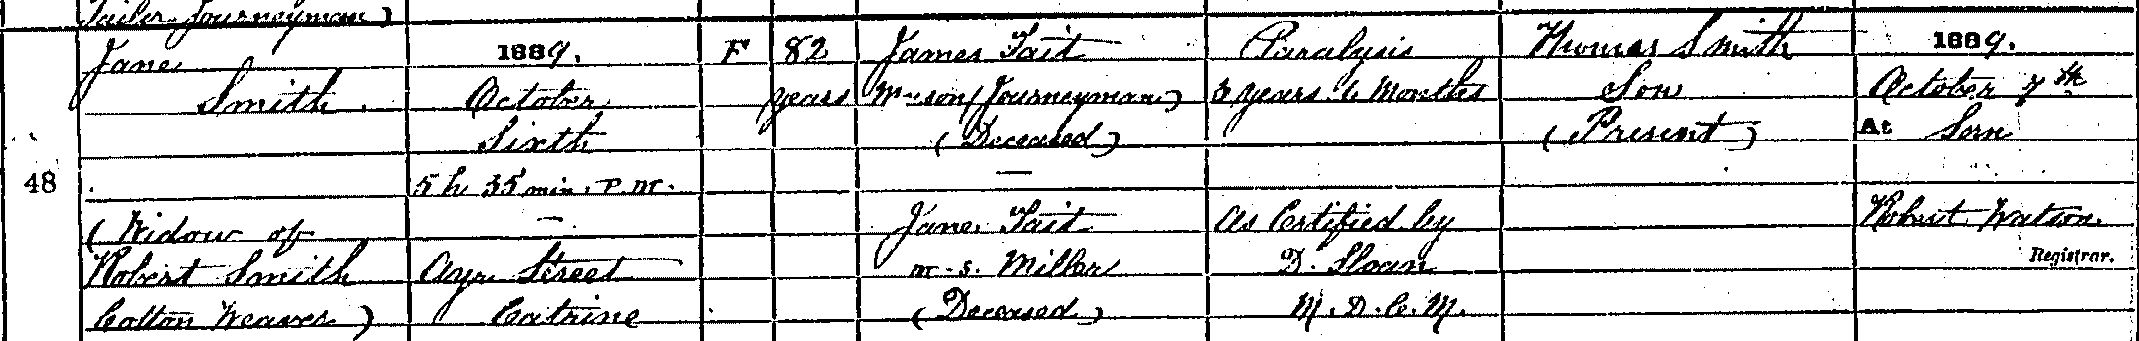 Tailor Journeyman)
48
Jane
Smith
(Widow of
Robert Smith
Cotton Weaver)
1889.
October
Sixth
5 h 35 min. P.M.
Ayr Street
Catrine
F
82
years
James Tait
Mason (Journeyman)
(Deceased)
Jane Tait
m.s. Miller
(Deceased)
Paralysis
3 years 6 Months
As Certified by
D. Sloan
M.D.C.M.
Thomas Smith
Son
(Present)
1889.
October 7th
At Sorn
Robert Watson
Registrar.